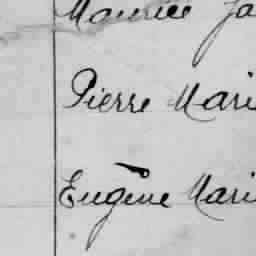 Maurice Ja
Pierre Mari
Eugène Mari